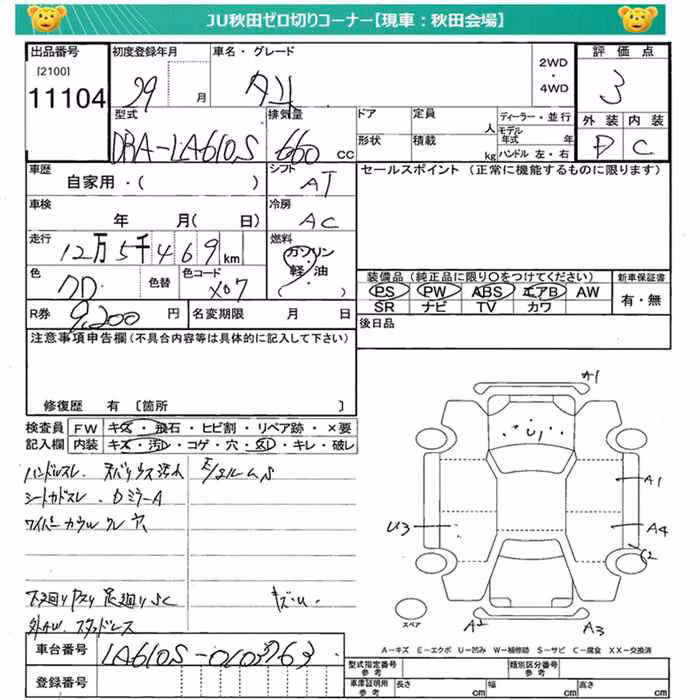 JU秋田ゼロ切りコーナー【現車：秋田会場】
出品番号 初度登録年月 車名・グレード 2WD ・ 4WD 評価点
[2100]
11104 29 月 タント 3
型式 排気量 ドア 定員 人 ディーラー・並行 外装 内装
DBA-LA610S 660 CC 形状 積載 kg モデル年式 年 ハンドル 左・右 D C
車歴 シフト セールスポイント (正常に機能するものに限ります)
自家用・( ) AT
車検 冷房
年 月( 日) AC
走行 燃料
12万5千469km ガソリン・軽・油 ( )
色 色替 色コード 装備品(純正品に限り○をつけてください) 新車保証書
X07 PS PW ABS エアB AW 有・無
SR ナビ TV カワ
R券 9,200 円 名変期限 月 日 後日品
注意事項申告欄(不具合内容等は具体的に記入して下さい)
修復歴 有 〔箇所 〕
検査員 FW キズ・飛石・ヒビ割・リペア跡・×要
記入欄 内装 キズ・汚れ・コゲ・穴・スレ・キレ・破レ
ハンドルスレ.
シートカドスレ. DミラーA
ワイパーカウルワレ 穴
下廻りサビ 足廻りSC キズ・U.
外AW. スタッドレス
A1
U1
A1
U3 A4
C2
スペア A2 A3
A－キズ E－エクボ U－凹み W－補修跡 S－サビ C－腐食 XX－交換済
車台番号 LA610S-0103763
登録番号
型式指定番号 参考 類別区分番号 参考
車庫証明用 参考 長さ cm 幅 cm 高さ cm